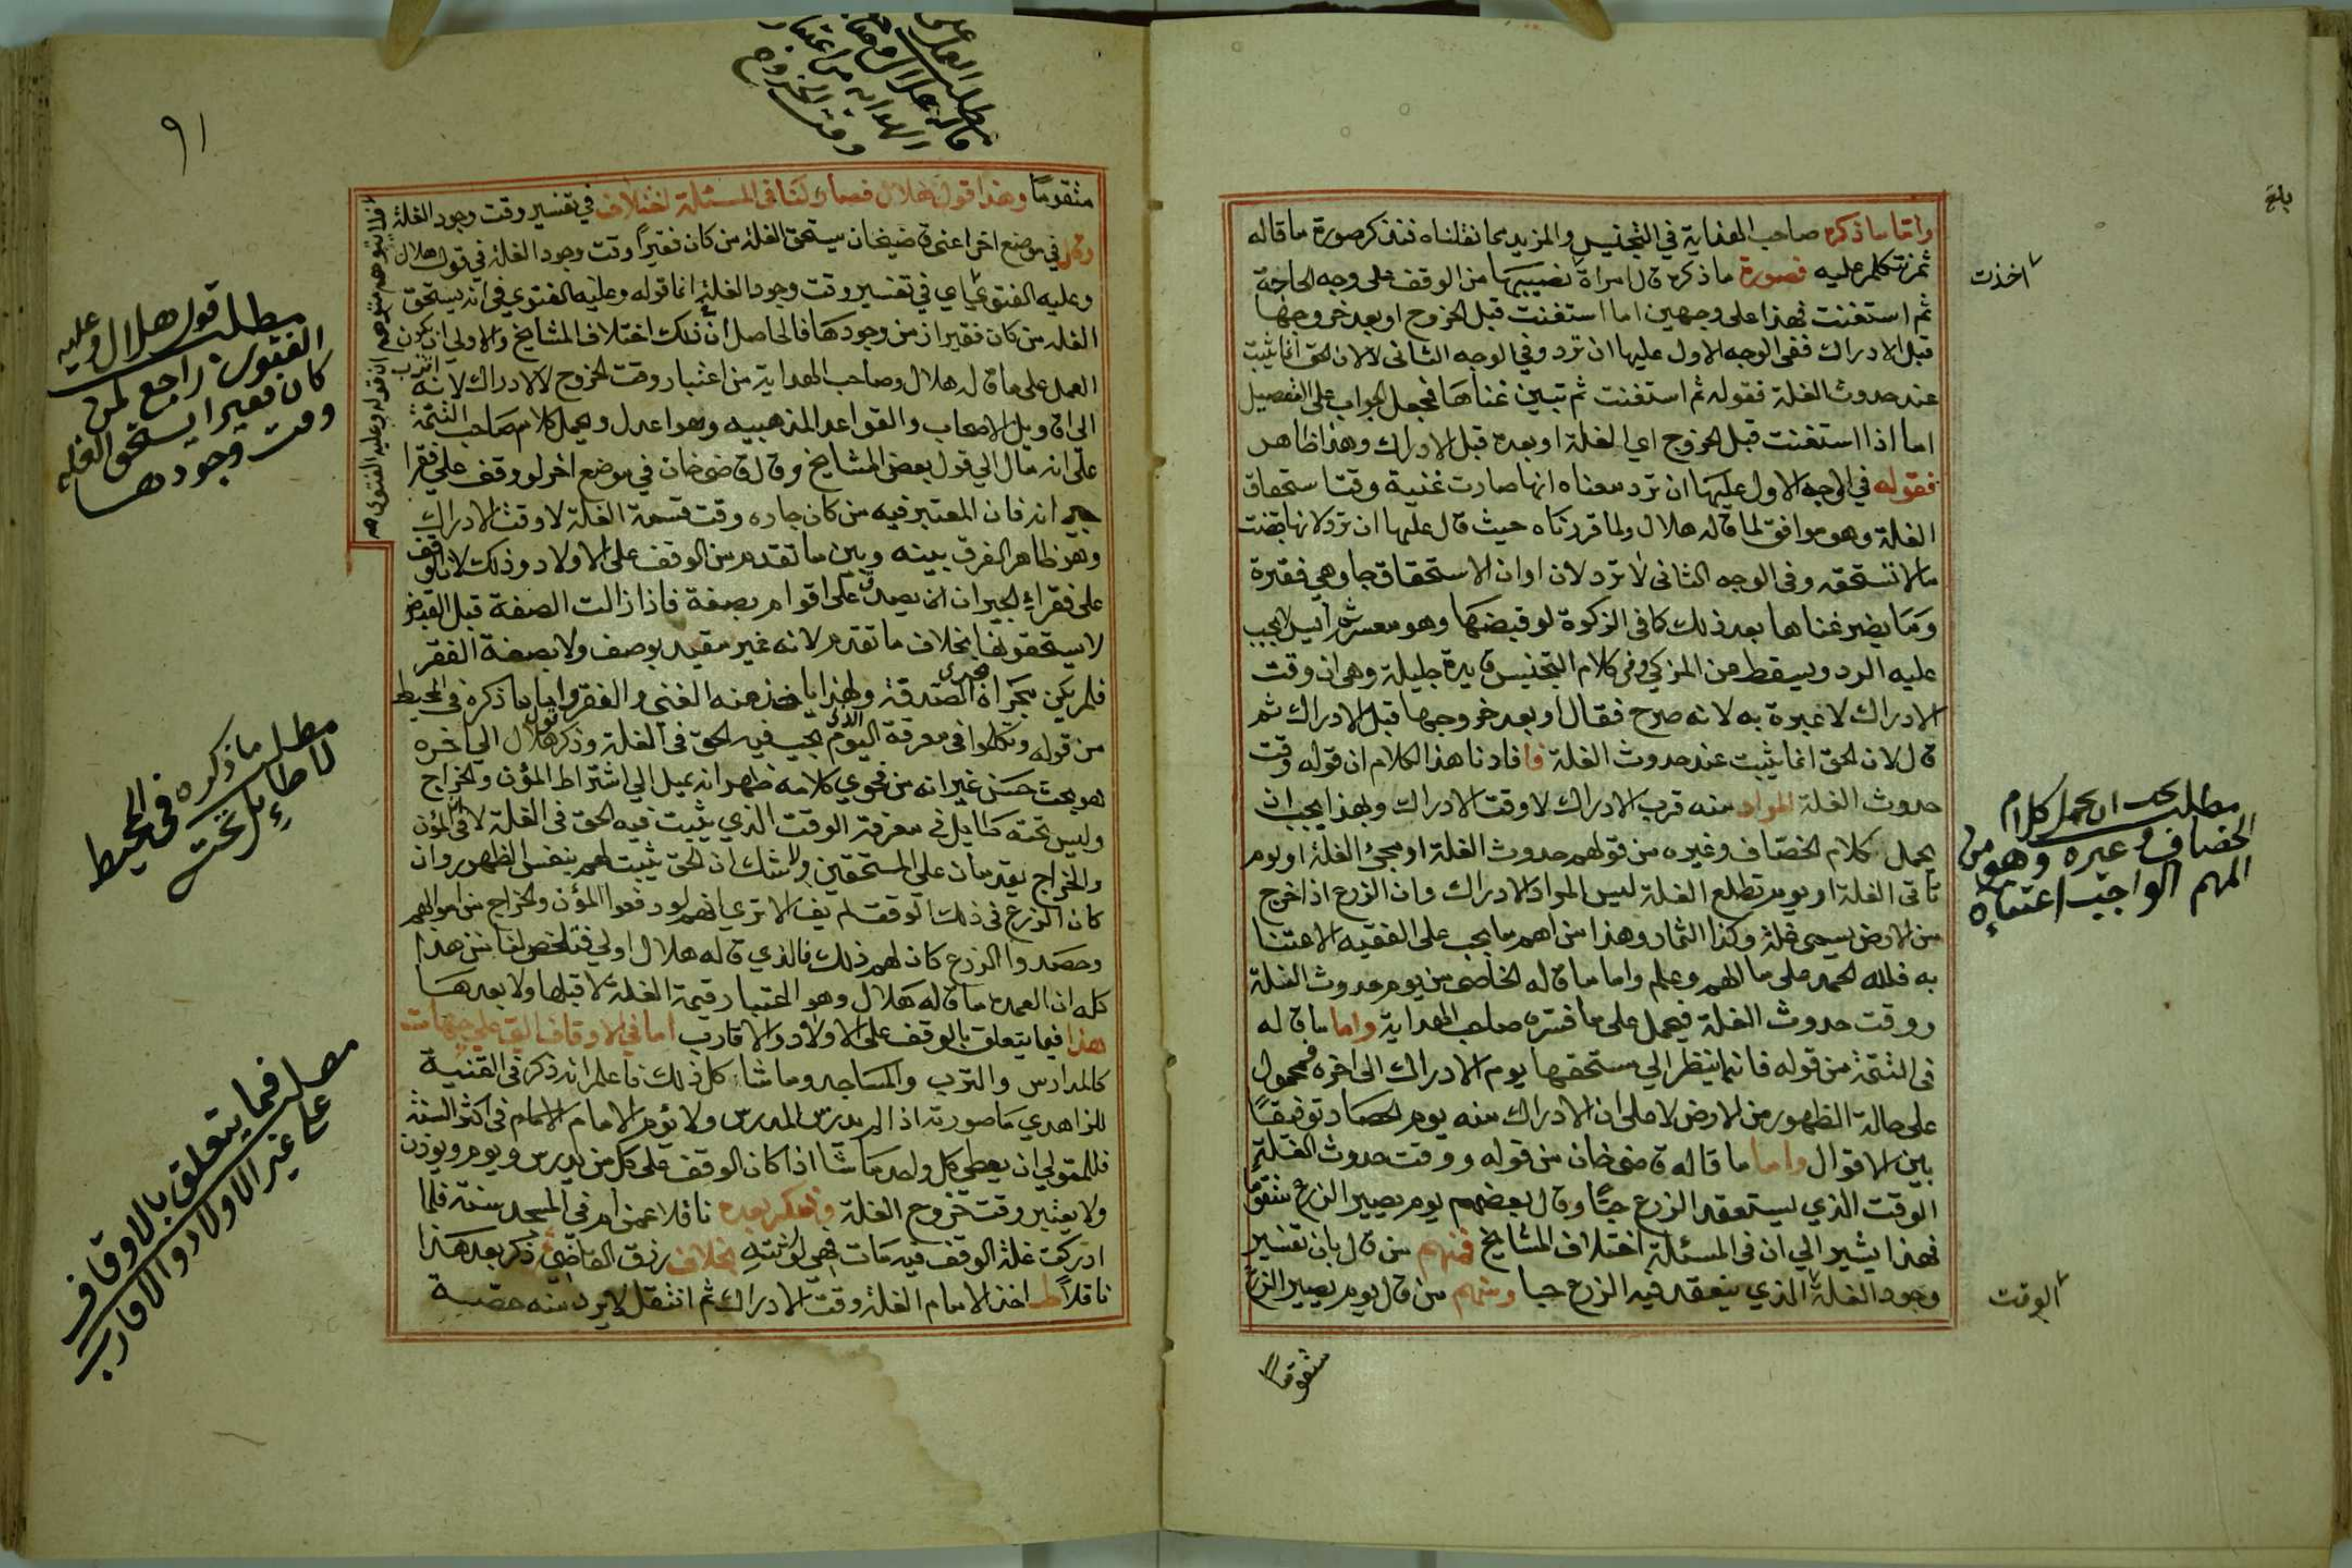 واما ما ذكره صاحب الهداية في التجنيس والمزيد مما نقلناه فنذكر صورة ما قاله
ثم نتكلم عليه فصورة ما ذكره قال امراة نصيبها من الوقف على وجه الحاجة
ثم استغنت فهذا على وجهين اما استغنت قبل الخروج او بعد خروجها
قبل الادراك ففي الوجه الاول عليها ان ترد وفي الوجه الثاني لا لان الحق انما يثبت
عند حدوث الغلة فقوله ثم استغنت ثم تبين غناها فجعل الجواب على التفصيل
اما اذا استغنت قبل الخروج اي الغلة او بعده قبل الادراك وهذا ظاهر
فقوله في الوجه الاول عليها ان ترد معناه انها صارت غنية وقت استحقاق
الغلة وهو موافق لما قاله هلال ولما قررناه حيث قال عليها ان ترد لانها قبضت
ما لا تستحقه وفي الوجه الثاني لا ترد لان اوان الاستحقاق جا وهي فقيرة
وما يضر غناها بعد ذلك كما في الزكوة لو قبضها وهو معسر ثم ايسر لا يجب
عليه الرد ويسقط عن المزكي وفي كلام التجنيس فايدة جليلة وهي ان وقت
الادراك لا عبرة به لانه صرح فقال او بعد خروجها قبل الادراك ثم
قال لان الحق انما يثبت عند حدوث الغلة فافادنا هذا الكلام ان قوله وقت
حدوث الغلة المراد منه قرب الادراك لا وقت الادراك وبهذا يجب ان
يحمل كلام الخصاف وغيره من قولهم حدوث الغلة او مجئ الغلة او يوم
تاتي الغلة او يوم تطلع الغلة ليس المراد الادراك وان الزرع اذا خرج
من الارض يسمى غلة وكذا الثمار وهذا من اهم ما يجب على الفقيه الاعتنا
به فلله الحمد على ما الهم وعلم واما ما قاله الخاصي من يوم حدوث الغلة
ووقت حدوث الغلة فيحمل على ما فسره صاحب الهداية واما ما قاله
في التتمة من قوله فانما ينظر الي مستحقها يوم الادراك الى اخره فمحمول
على حالة الظهور من الارض لا على ان الادراك منه يوم الحصاد توفيقا
بين الاقوال واما ما قاله قاضي خان من قوله ووقت حدوث الغلة
الوقت الذي ينعقد الزرع حبا وقال بعضهم يوم يصير الزرع متقوما
فهذا يشير الي ان في المسئلة اختلاف المشايخ فمنهم من قال بان تفسير
وجود الغلة الذي ينعقد فيه الزرع حبا ومنهم من قال يوم يصير الزرع
متقوما
اخذت
بلغ
مطلب يجب ان يحمل كلام
الخصاف وغيره وهو من
المهم الواجب اعتناه
الوقت
٩١
متقوما وهذا قول هلال فصار لنا في المسئلة اختلاف في تفسير وقت وجود الغلة
في موضع اخر اعني قاضيخان يستحق الغلة من كان فقيرا وقت وجود الغلة في قول هلال
وعليه الفتوي اي في تفسير وقت وجود الغلة انما قوله وعليه الفتوي في انه يستحق
الغله من كان فقيرا زمن وجودها فالحاصل ان ذلك اختلاف المشايخ والاولى ان يكون
العمل على ما قاله هلال وصاحب الهداية من اعتبار وقت الخروج لا الادراك لانه اقرب
الى اقاويل الاصحاب والقواعد المذهبيه وهو اعدل ويحمل كلام صاحب التتمة
على انه مال الي قول بعض المشايخ وقال قاضي خان في موضع اخر لو وقف علي فقرا
جيرانه فان المعتبر فيه من كان جاره وقت قسمة الغلة لا وقت الادراك
وهو ظاهر الفرق بينه وبين ما تقدم من الوقف على الاولاد وذلك لان الوقف
على فقراء الجيران انما يصدق على اقوام بصفة فاذا زالت الصفة قبل القبض
لا يستحقونها بخلاف ما تقدم لانه غير مقيد بوصف ولا بصفة الفقر
فلم يكن مجراه مجرى الصدقة ولهذا ياخذ منه الغني والفقير واما ما ذكره في المحيط
من قوله وتكلموا في معرفة اليوم الذي يجب فيه الحق في الغلة وذكر قول هلال الي اخره
هو بحث حسن غير انه من فحوي كلامه ظهر انه يميل الي اشتراط المؤن والخراج
وليس تحته طايل في معرفة الوقت الذي يثبت فيه الحق في الغلة لان المؤن
والخراج يقدمان على المستحقين ولا شك ان الحق يثبت لهم بنفس الظهور وان
كان الزرع في ذلك الوقت لم يف الا تري انهم لو دفعوا المؤن والخراج من اموالهم
وحصدوا الزرع كان لهم ذلك فالذي قاله هلال اولي فتلخص لنا من هذا
كله ان العمدة ما قاله هلال وهو اعتبار قيمة الغلة لا قبلها ولا بعدها
هذا فيما يتعلق بالوقف على الاولاد والاقارب اما في الاوقاف التي علي جهات
كالمدارس والترب والمساجد وما شاكل ذلك فاعلم انه ذكر في القنية
للزاهدي ما صورته اذا لم يدرس المدرس ولا يؤم الامام في اكثر السنة
فللمتولي ان يعطي كل واحد ما شا اذا كان الوقف على كل من يدرس ويوم ويوذن
ولا يعتبر وقت خروج الغلة وذكر بعده ناقلا عمن ام في المسجد سنة فلما
ادركت غلة الوقف فيه مات فهي لورثته بخلاف رزق القاضي ذكر بعد هذا
ناقلا اخذ الامام الغلة وقت الادراك ثم انتقل لا يرد منه حصة
فلا يتوهم متوهم ان قوله وعليه الفتوى
مطلب العمل على
ما قاله هلال وصاحب
الهدايه من اعتبار
وقت الخروج
مطلب قول هلال وعليه
الفتوى راجع لمن
كان فقيرا يستحق الغله
وقت وجودها
مطلب ما ذكره في المحيط
لا طائل تحته
فيما يتعلق بالاوقاف
على غير الاولاد والاقارب